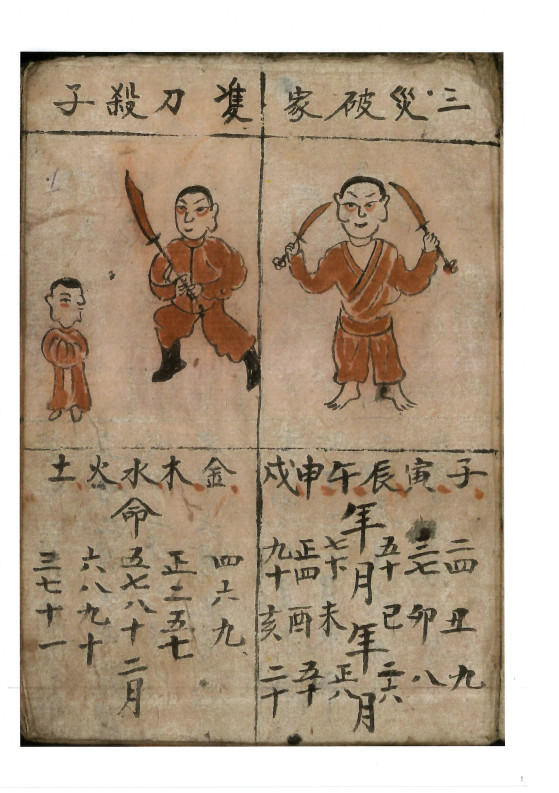 三災破家
子寅辰午申戌
年月年月
二四丑九
三七卯八
五十巳二六
未正八
正四酉五十
九十亥二十
隻刀殺子
金木水火土
命
四六九
正二五七
五七八十二月
六八九十
三七十一